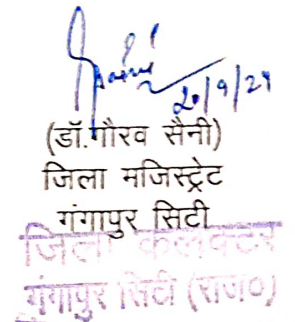 20/9/24
(डॉ.गौरव सैनी)
जिला मजिस्ट्रेट
गंगापुर सिटी
जिला कलक्टर
गंगापुर सिटी (राज०)